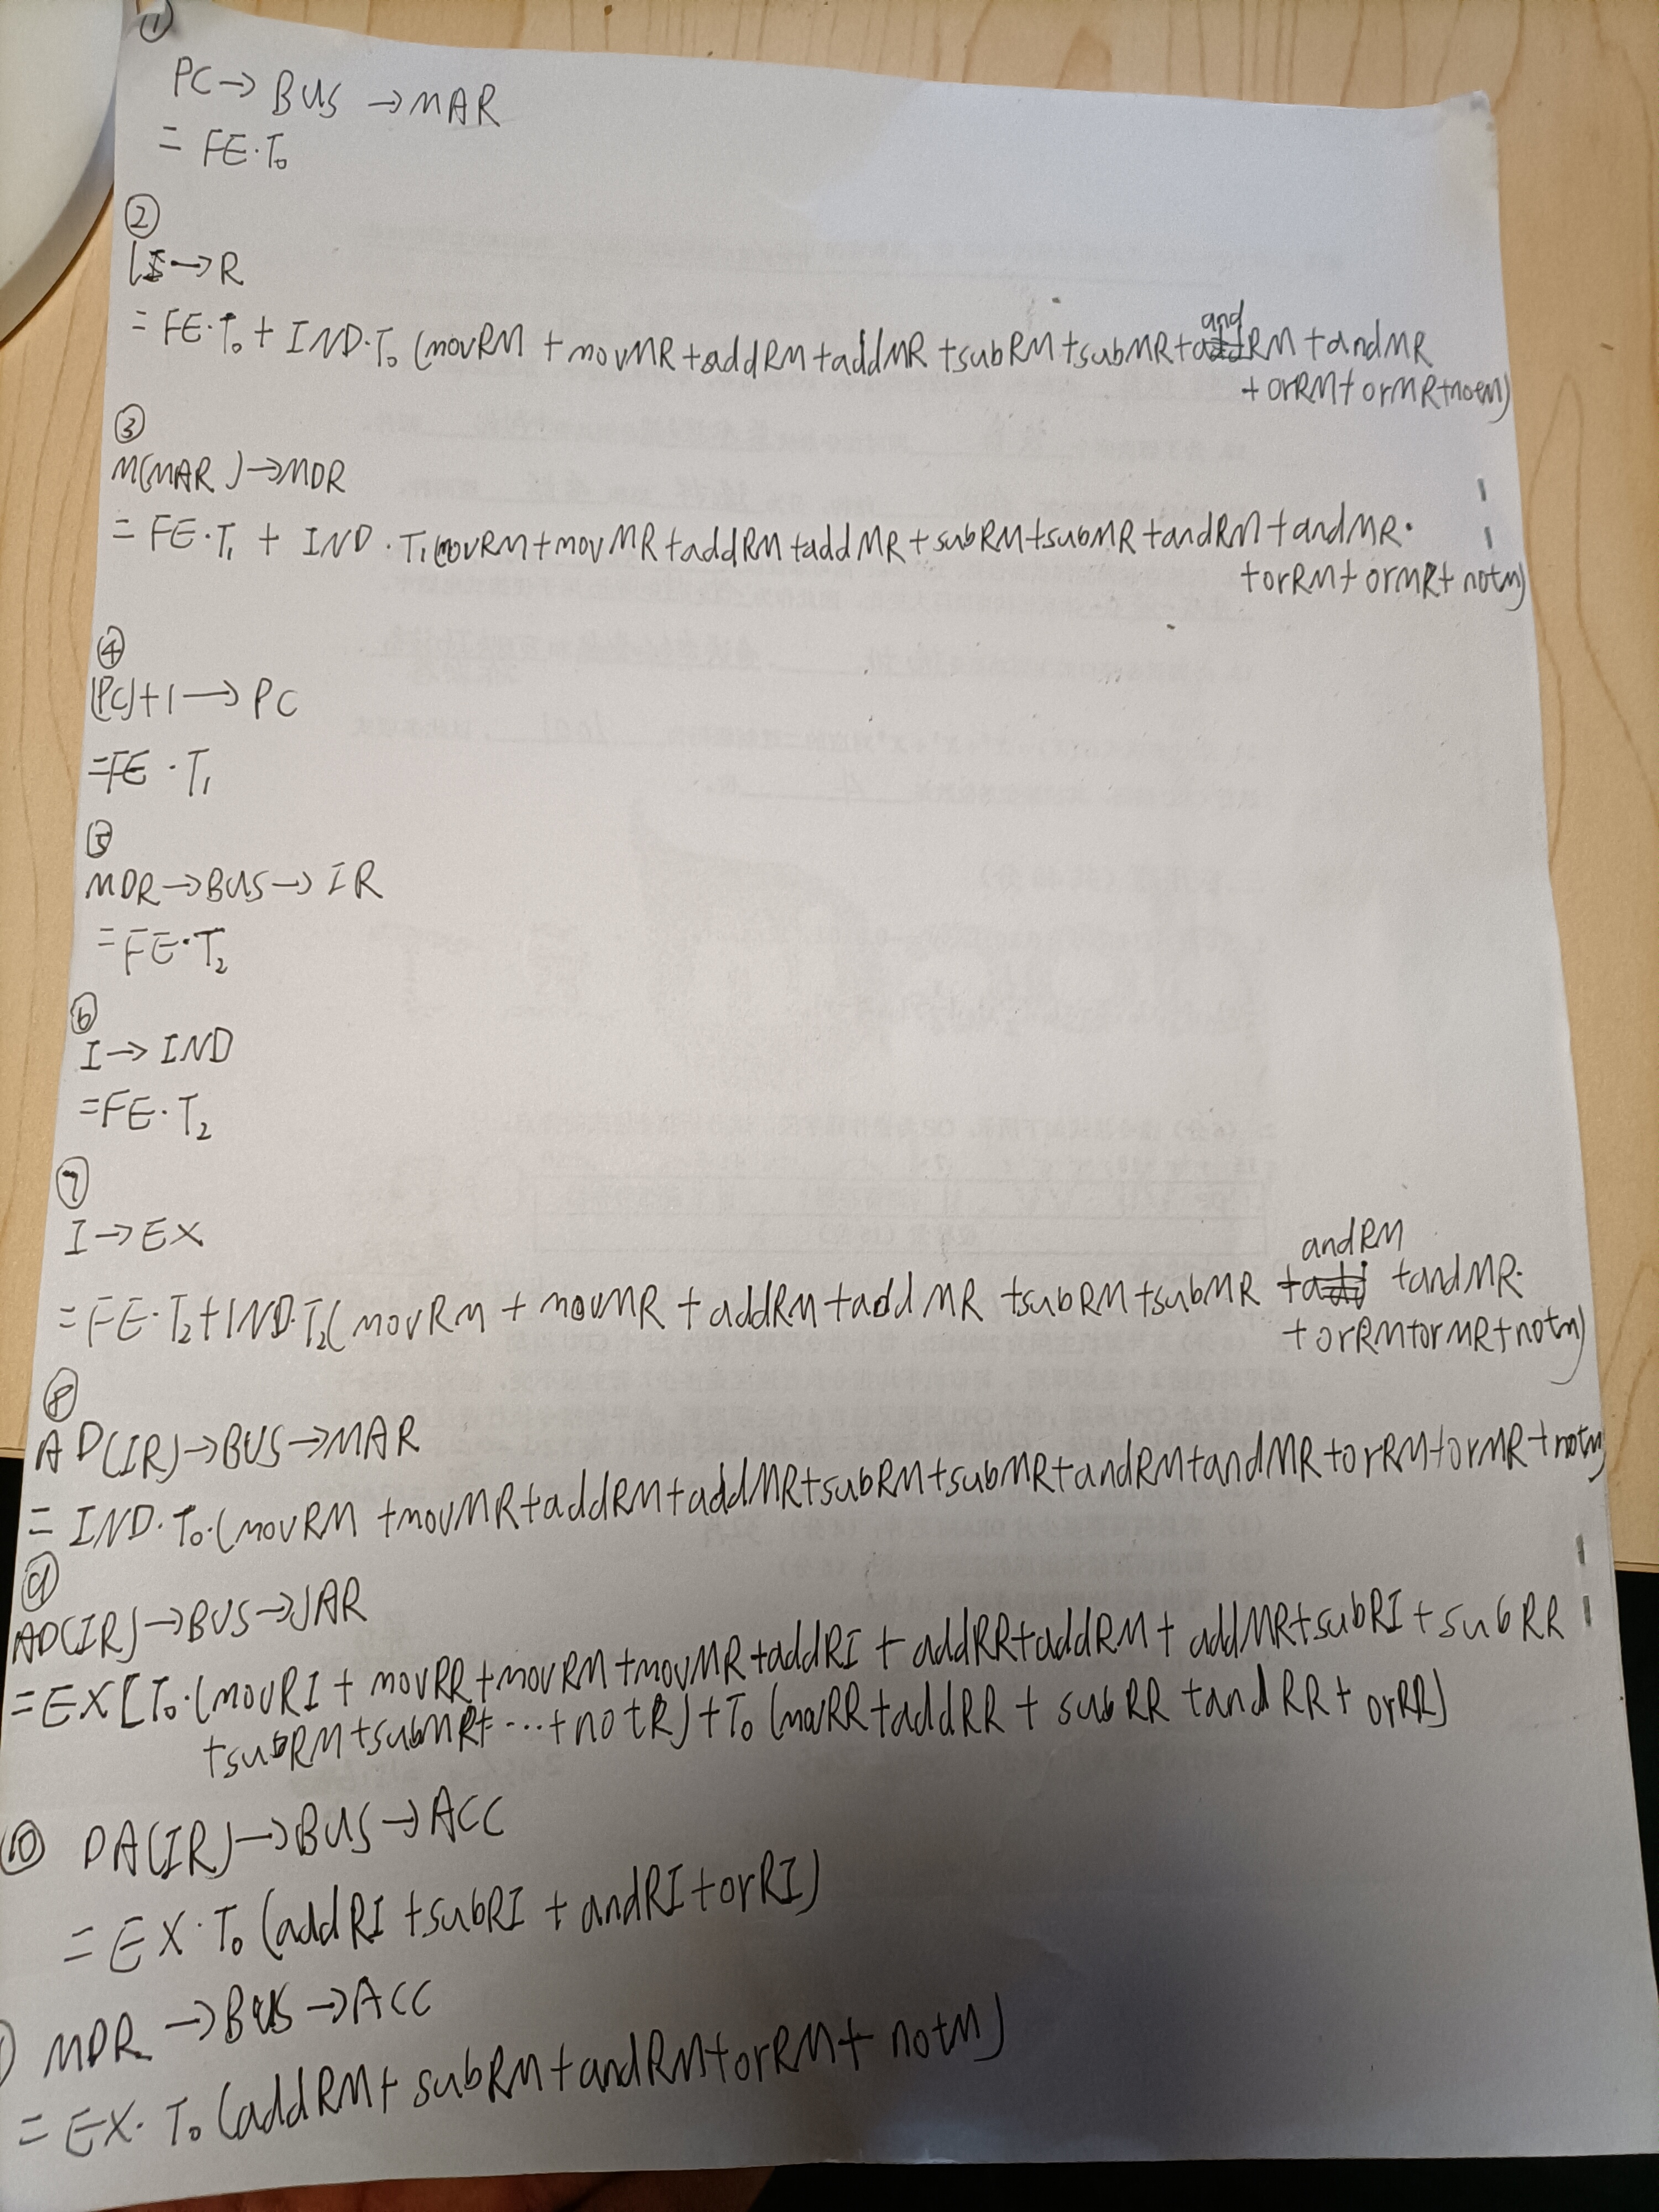 ①
PC→BUS→MAR
= FE·T₀
②
1→R
= FE·T₀ + IND·T₀ (movRM + movMR + addRM + addMR + subRM + subMR + andRM + andMR
+ orRM + orMR + notM)
③
M(MAR)→MDR
= FE·T₁ + IND·T₁(movRM + movMR + addRM + addMR + subRM + subMR + andRM + andMR
+ orRM + orMR + notM)
④
(PC)+1→PC
= FE·T₁
⑤
MDR→BUS→IR
= FE·T₂
⑥
I→IND
= FE·T₂
⑦
I→EX
= FE·T₂ + IND·T₂(movRM + movMR + addRM + addMR + subRM + subMR + andRM + andMR
+ orRM + orMR + notM)
⑧
AD(IR)→BUS→MAR
= IND·T₀·(movRM + movMR + addRM + addMR + subRM + subMR + andRM + andMR + orRM + orMR + notM
⑨
AD(IR)→BUS→JAR
= EX[T₀·(movRI + movRR + movRM + movMR + addRI + addRR + addRM + addMR + subRI + subRR
+ subRM + subMR + ··· + notR) + T₀ (RR + addRR + subRR + andRR + orRR)
⑩ DA(IR)→BUS→ACC
= EX·T₀ (addRI + subRI + andRI + orRI)
MDR→BUS→ACC
= EX·T₀ (addRM + subRM + andRM + orRM + notM)